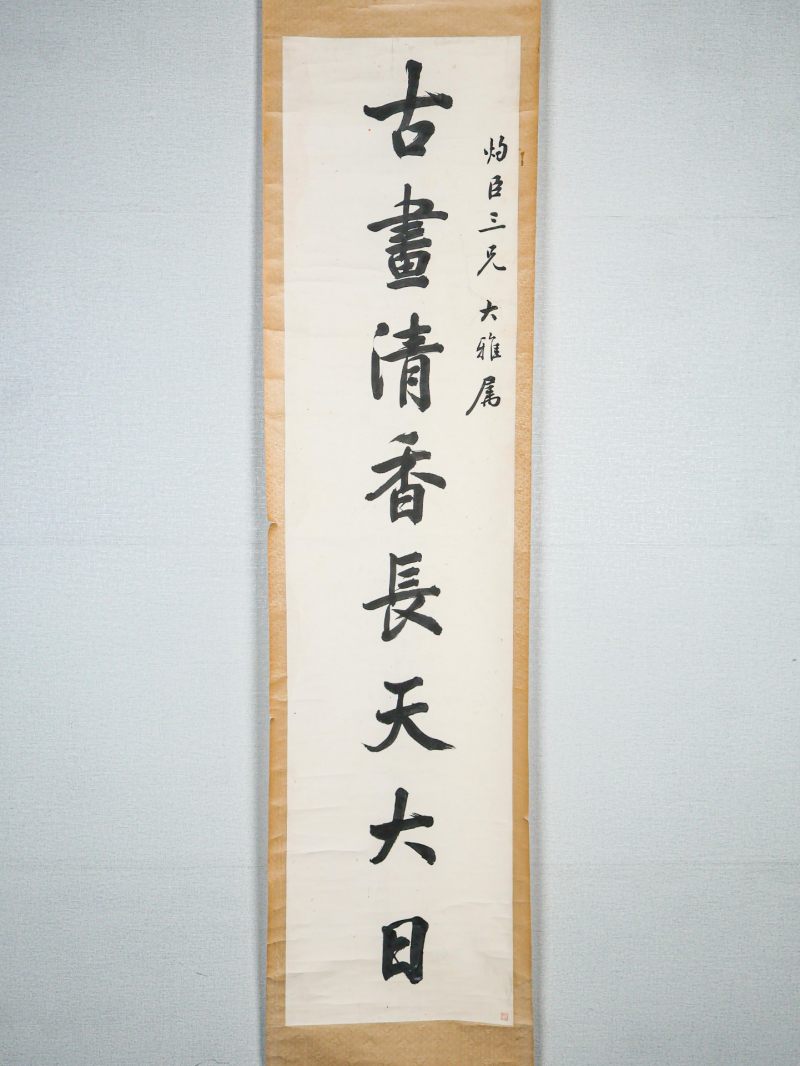 灼臣三兄大雅属
古畫清香長天大日